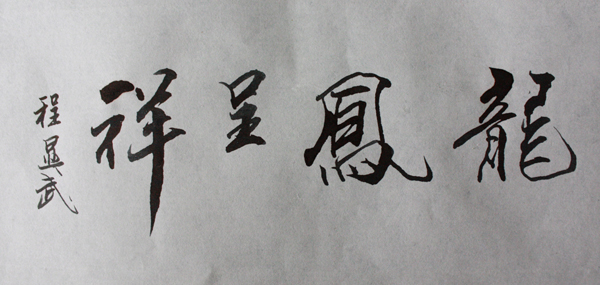 龍鳳呈祥
程显武